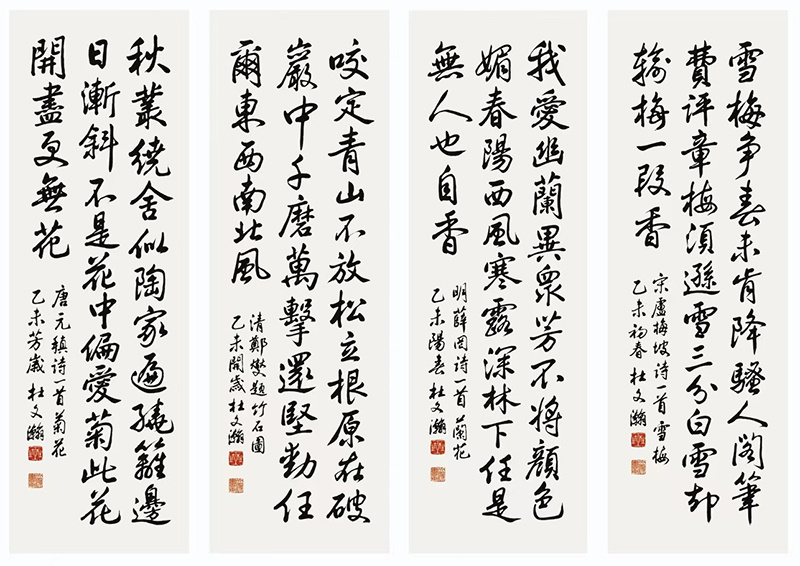 雪梅争春未肯降騷人閣筆
費評章梅須遜雪三分白雪却
輸梅一段香
宋盧梅坡诗一首雪梅
乙未初春杜文瀚
我愛幽蘭異衆芳不將顔色
媚春陽西風寒露深林下任是
無人也自香
明薛网诗一首蘭花
乙未陽春杜文瀚
咬定青山不放松立根原在破
巖中千磨萬擊還堅勁任
爾東西南北風
清鄭燮题竹石圖
乙未開歲杜文瀚
秋叢繞舍似陶家遍繞籬邊
日漸斜不是花中偏愛菊此花
開盡更無花
唐元稹诗一首菊花
乙未芳歲杜文瀚